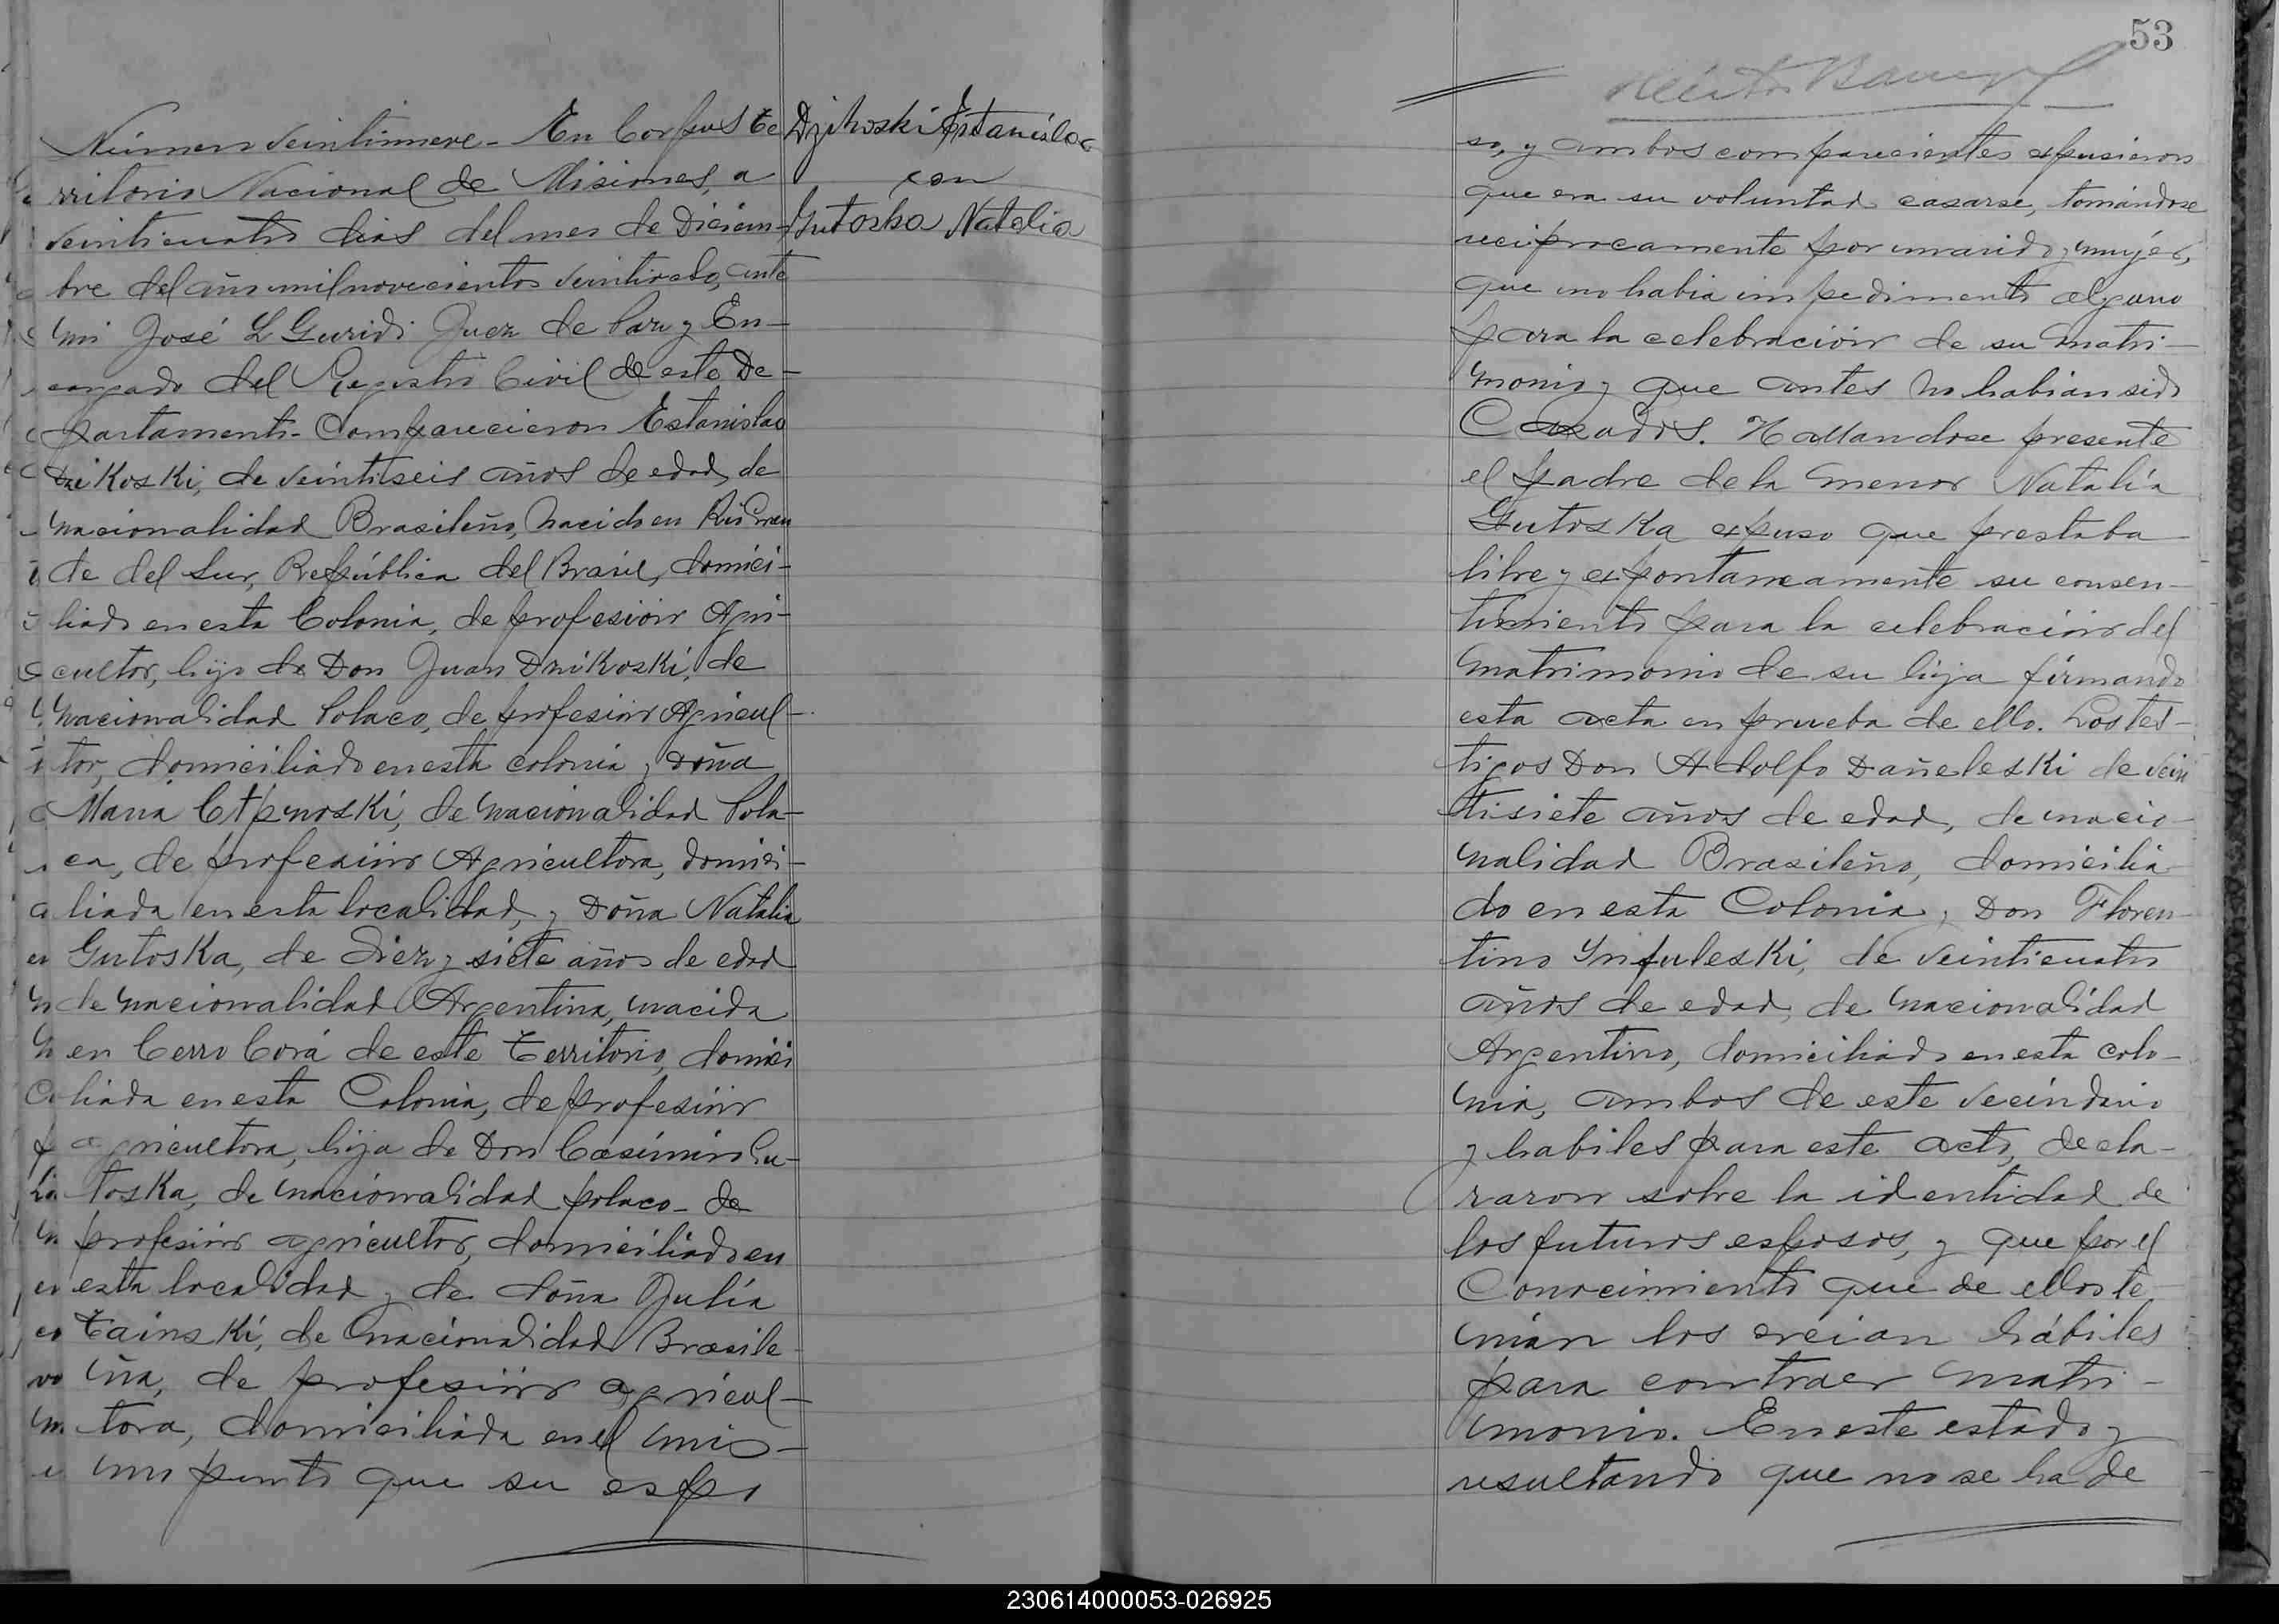 Número veintinueve - En Corpus Te
rritorio Nacional de Misiones, a
veinticuatro dias del mes de Diciem-
bre del año mil novecientos veintiocho, ante
mi José L Guridi Juez de Paz y En-
cargado del Registro Civil de este De-
partamento - Comparecieron Estanislao
DziKosKi, de veintiseis años de edad, de
nacionalidad Brasileño, nacido en Rio Gran
de del Sur, República del Brasil, domici-
liado en esta Colonia, de profesión Agri-
cultor, hijo de Don Juan DziKosKi, de
nacionalidad Polaco, de profesión Agricul-
tor, domiciliado en esta colonia y doña
Maria de nacionalidad Pola-
ca, de profesión Agricultora, domici-
liada en esta localidad, y Doña Natalia
GutosKa, de Diez y siete años de edad
de nacionalidad Argentina, nacida
en Cerro Corá de este Territorio, domici
liada en esta Colonia, de profesión
agricultora, hija de Don Casimiro Gu-
tosKa, de nacionalidad polaco - de
profesión agricultor, domiciliado en
esta localidad y de doña Julia
TainsKi, de nacionalidad Brasile
ña, de profesión agricul-
tora, domiciliada en el mis-
mo punto que su espo
Dzikoski Estanislao
con
Gutoska Natalia
53
so, y ambos comparecientes expusieron
que era su voluntad casarse, tomándose
reciprocamente por marido y mujer,
que no habia impedimento alguno
para la celebración de su matri-
monio y que antes no habian sido
Casados. Hallandose presente
el padre de la menor Natalia
GutosKa expuso que prestaba
libre y expontaneamente su consen-
timiento para la celebración del
matrimonio de su hija firmando
esta acta en prueba de ello. Los tes-
tigos Don Adolfo DañelesKi de vein
tisiete años de edad, de nacio-
nalidad Brasileño, domicilia
do en esta Colonia, y Don Floren-
tino de veinticuatro
años de edad, de nacionalidad
Argentino, domiciliado en esta colo-
nia, ambos de este vecindario
y habiles para este acto, decla-
raron sobre la identidad de
los futuros esposos, y que por el
Conocimiento que de ellos te
nian los creian hábiles
para contraer matri-
monio. En este estado y
resultando que no se ha de
230614000053-026925